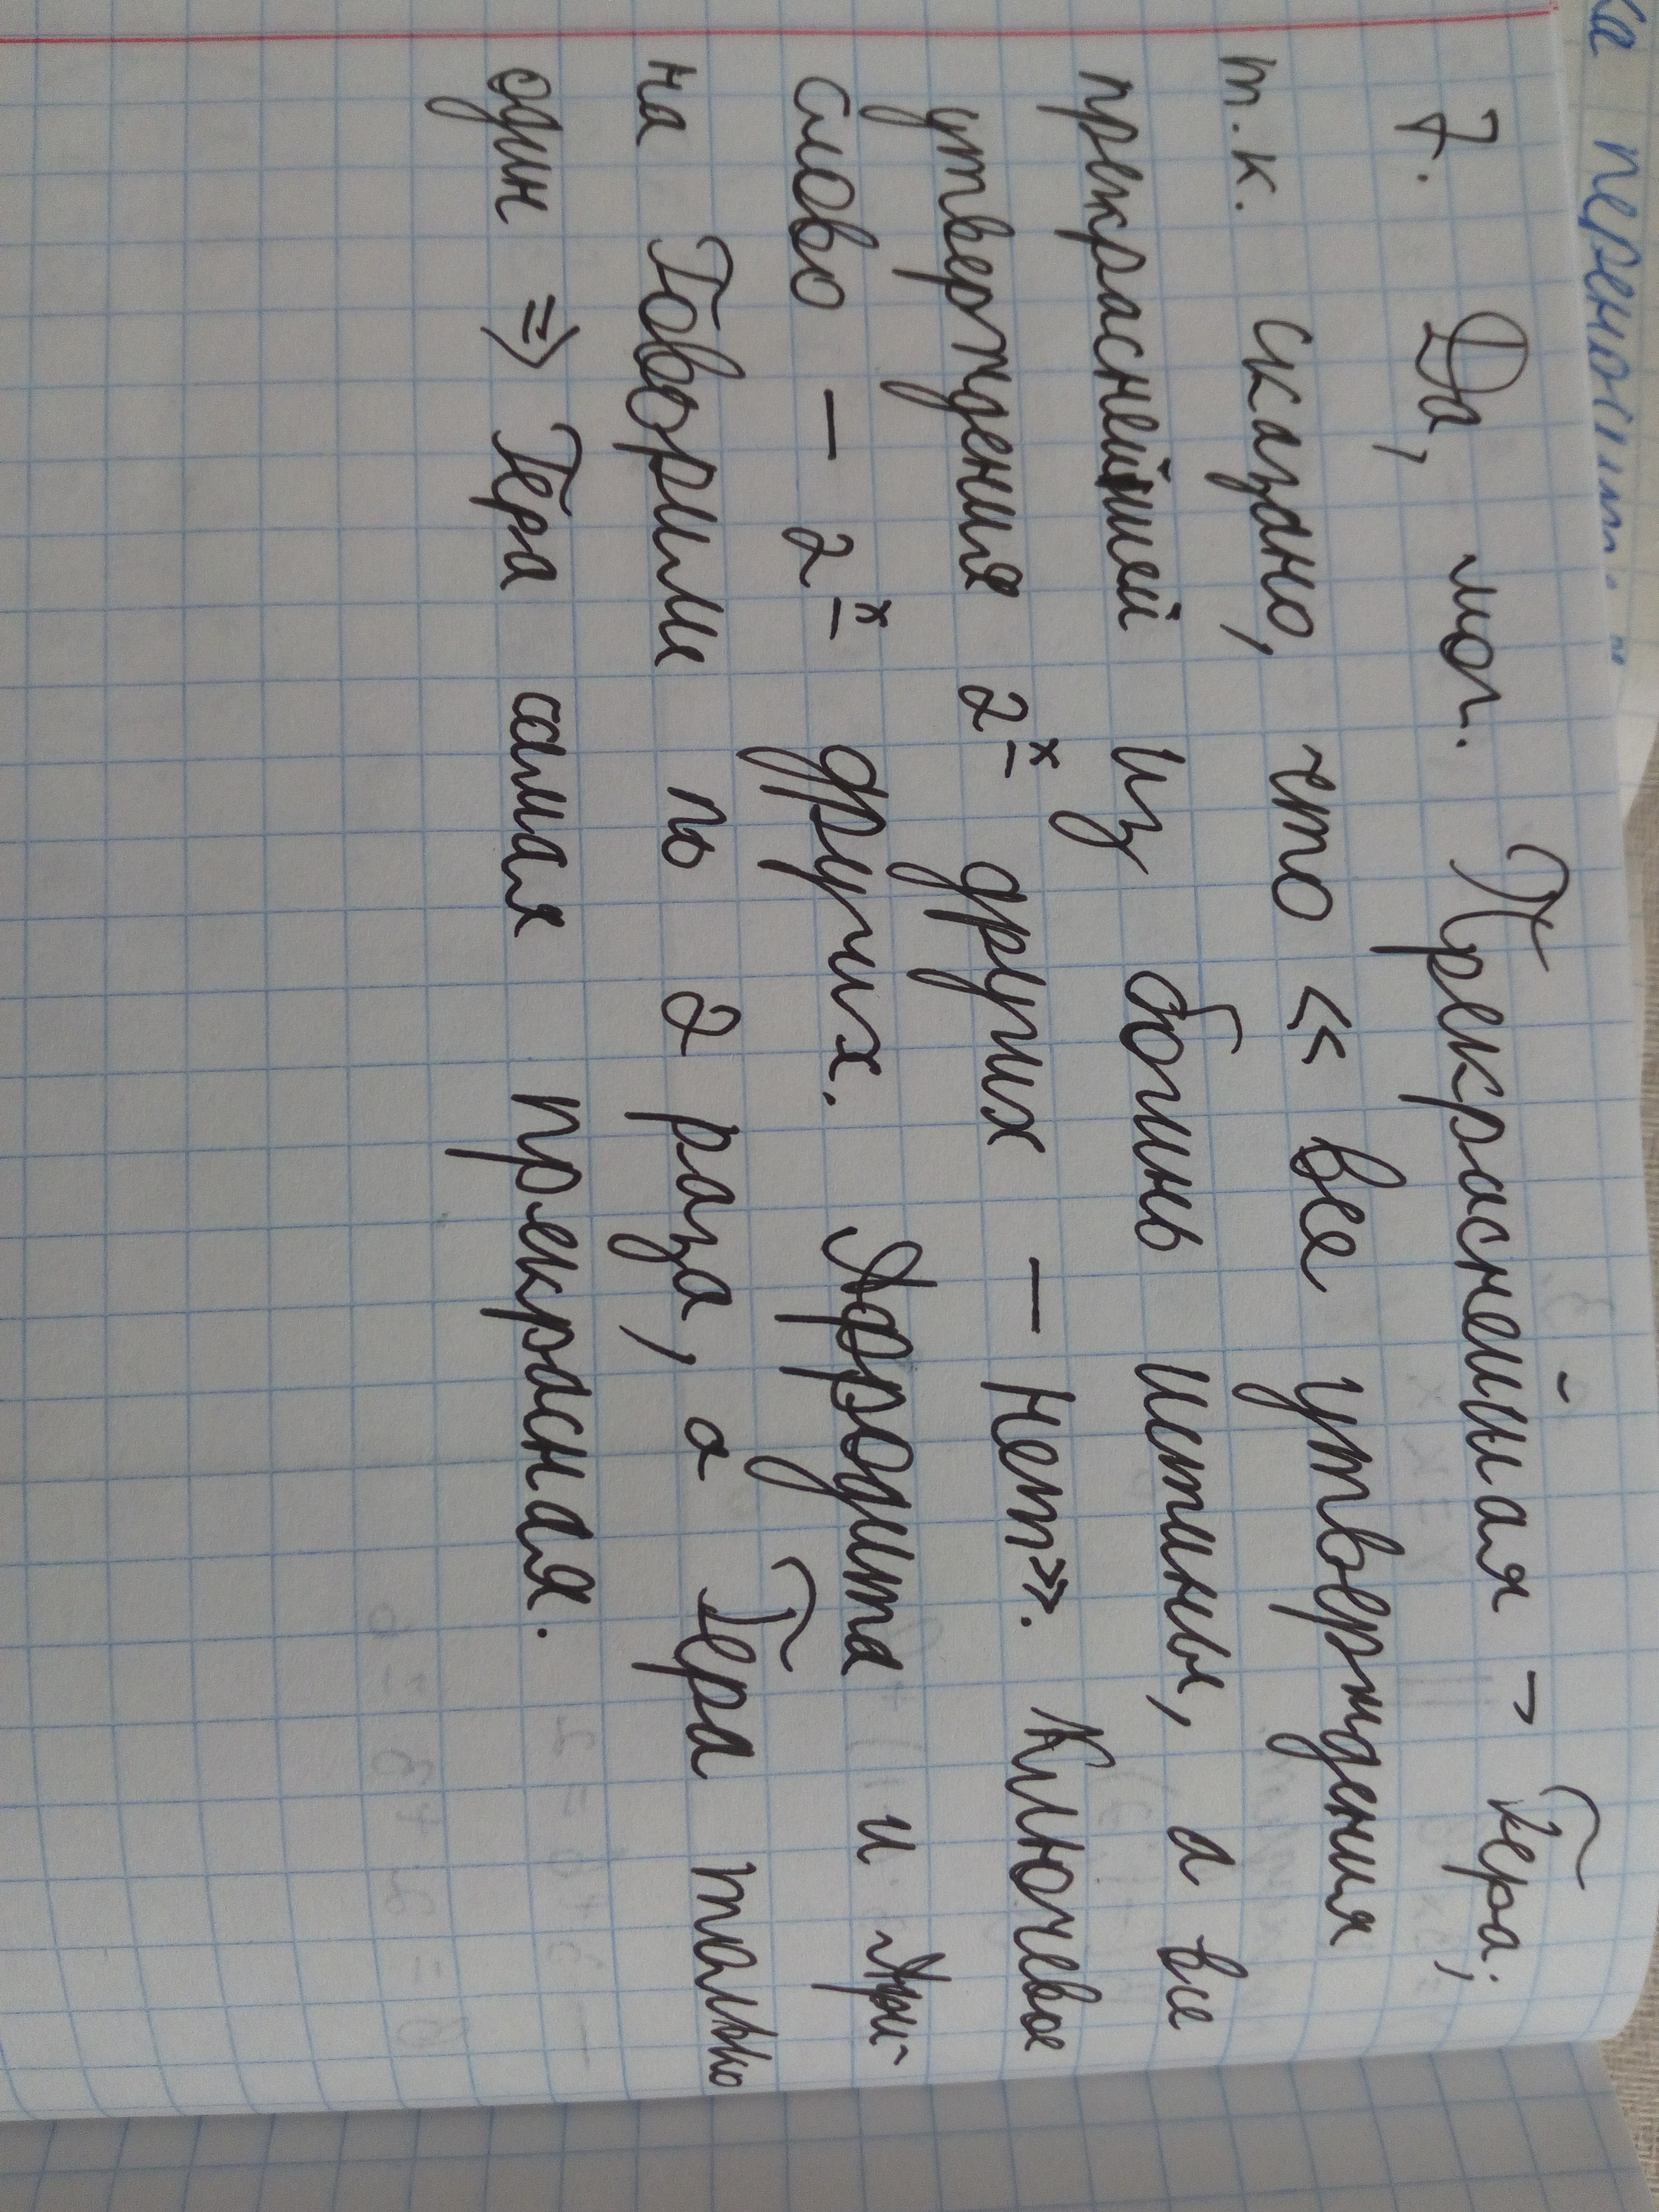 ка переносим. "
7. Да, мог. Прекраснейшая – Гера;
т.к. сказано, что «все утверждения
прекраснейшей из богинь истины, а все
утверждения 2-х других – нет». Ключевое
слово – 2-х других. Афродита и Афи-
на Говорили по 2 раза, а Гера только
один => Гера самая прекрасная.